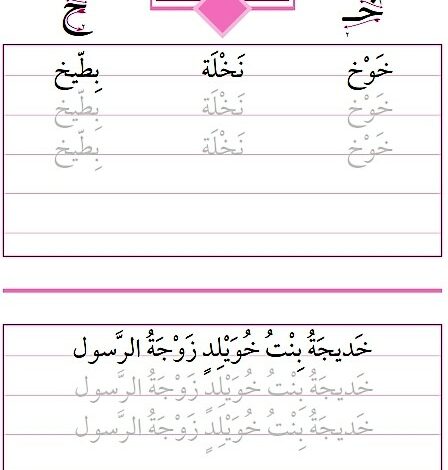 خـ خ
خَوْخ نَخْلَة بِطّيخ
خَوْخ نَخْلَة بِطّيخ
خَوْخ نَخْلَة بِطّيخ
خَديجَةُ بِنْتُ خُوَيْلِدٍ زَوْجَةُ الرَّسول
خَديجَةُ بِنْتُ خُوَيْلِدٍ زَوْجَةُ الرَّسول
خَديجَةُ بِنْتُ خُوَيْلِدٍ زَوْجَةُ الرَّسول